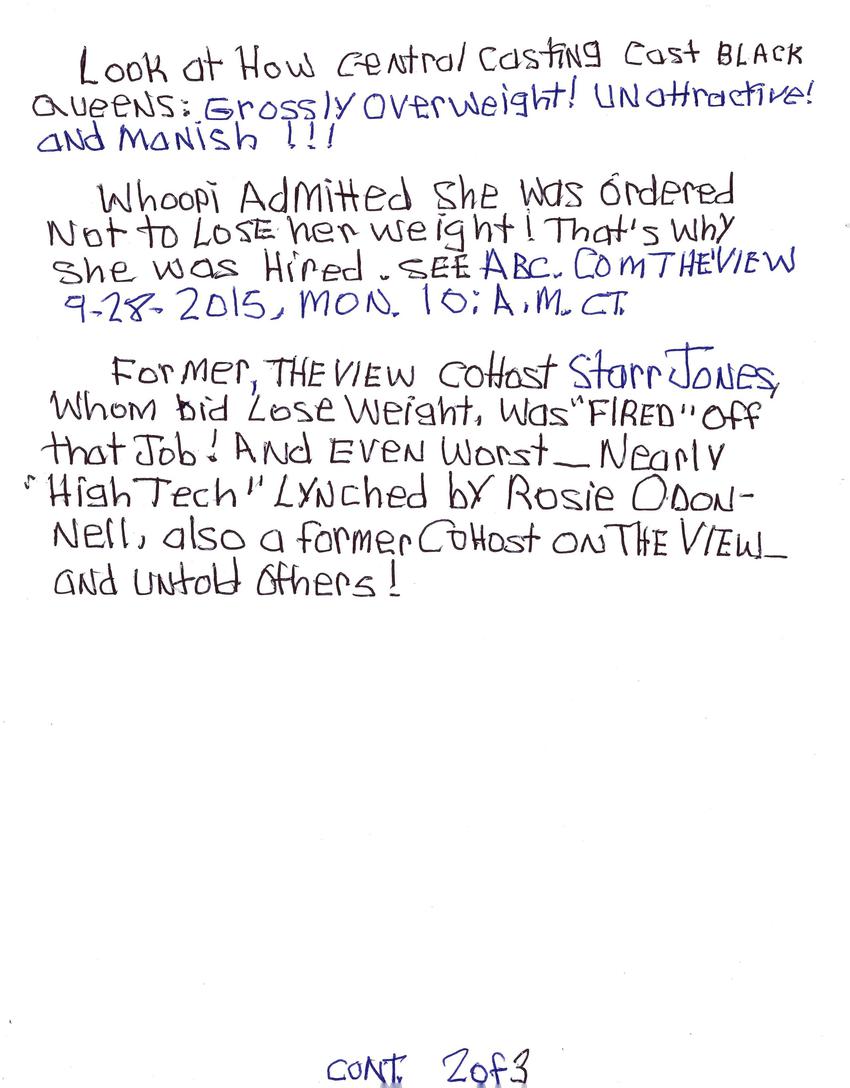 Look at How Central Casting Cast BLACK
QUEENS: Grossly Overweight! UNattractive!
and MaNish !!!
Whoopi Admitted she was ordered
Not to LOSE her weight! That's why
she was Hired. SEE ABC. COM THE VIEW
9-28-2015, MON. 10: A.M. CT.
Former, THE VIEW CoHost Starr JoNes,
Whom did Lose Weight, was "FIRED" off
that Job! ANd EVEN Worst_ Nearly
"High Tech" LYNched by Rosie ODON-
Nell, also a former CoHost ON THE VIEW_
and UNtold others!
CONT. 2 of 3